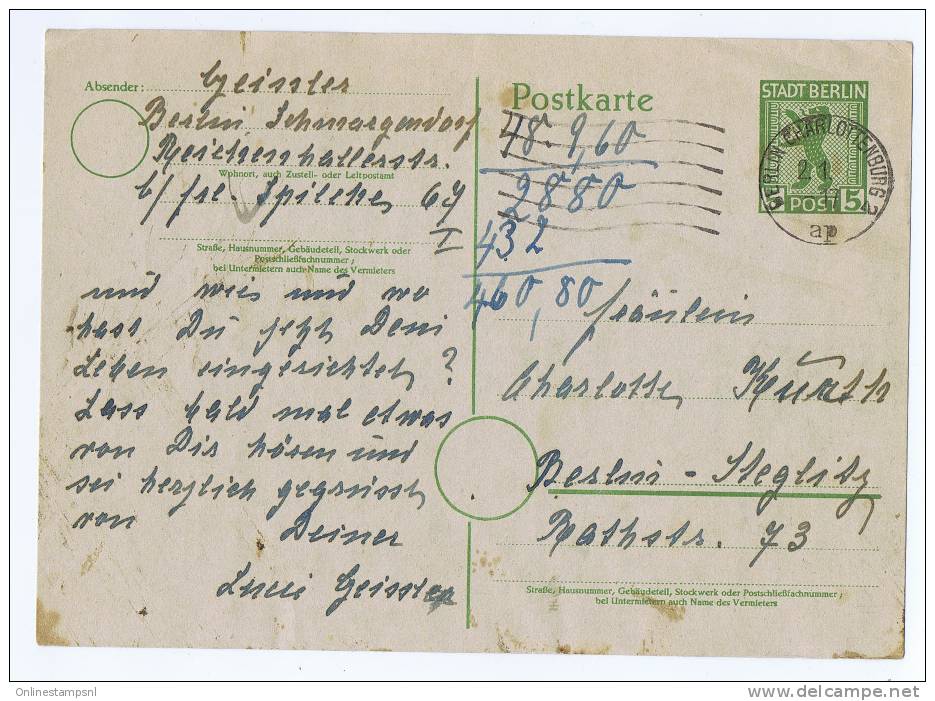 Absender: Geissler
Berlin Schmargendorf
Reichenhallerstr.
Wohnort, auch Zustell- oder Leitpostamt
b/frl. Spilcke, 67 I
Straße, Hausnummer, Gebäudeteil, Stockwerk oder
Postschließfachnummer;
bei Untermietern auch Name des Vermieters
und weis und wo
hast Du jetzt Dein
Leben eingerichtet?
Lass bald mal etwas
von Dir hören und
sei herzlich gegrüsst
von Deiner
Luci Geissler
Postkarte
48 · 9,60
2880
432
460,80
STADT BERLIN
POST 5
BERLIN-CHARLOTTENBURG 2
2.1.
17
ap
Fräulein
Charlotte Kurth
Berlin-Steglitz
Rathstr. 73
Straße, Hausnummer, Gebäudeteil, Stockwerk oder Postschließfachnummer;
bei Untermietern auch Name des Vermieters
Onlinestampsnl
http://www.delcampe.net